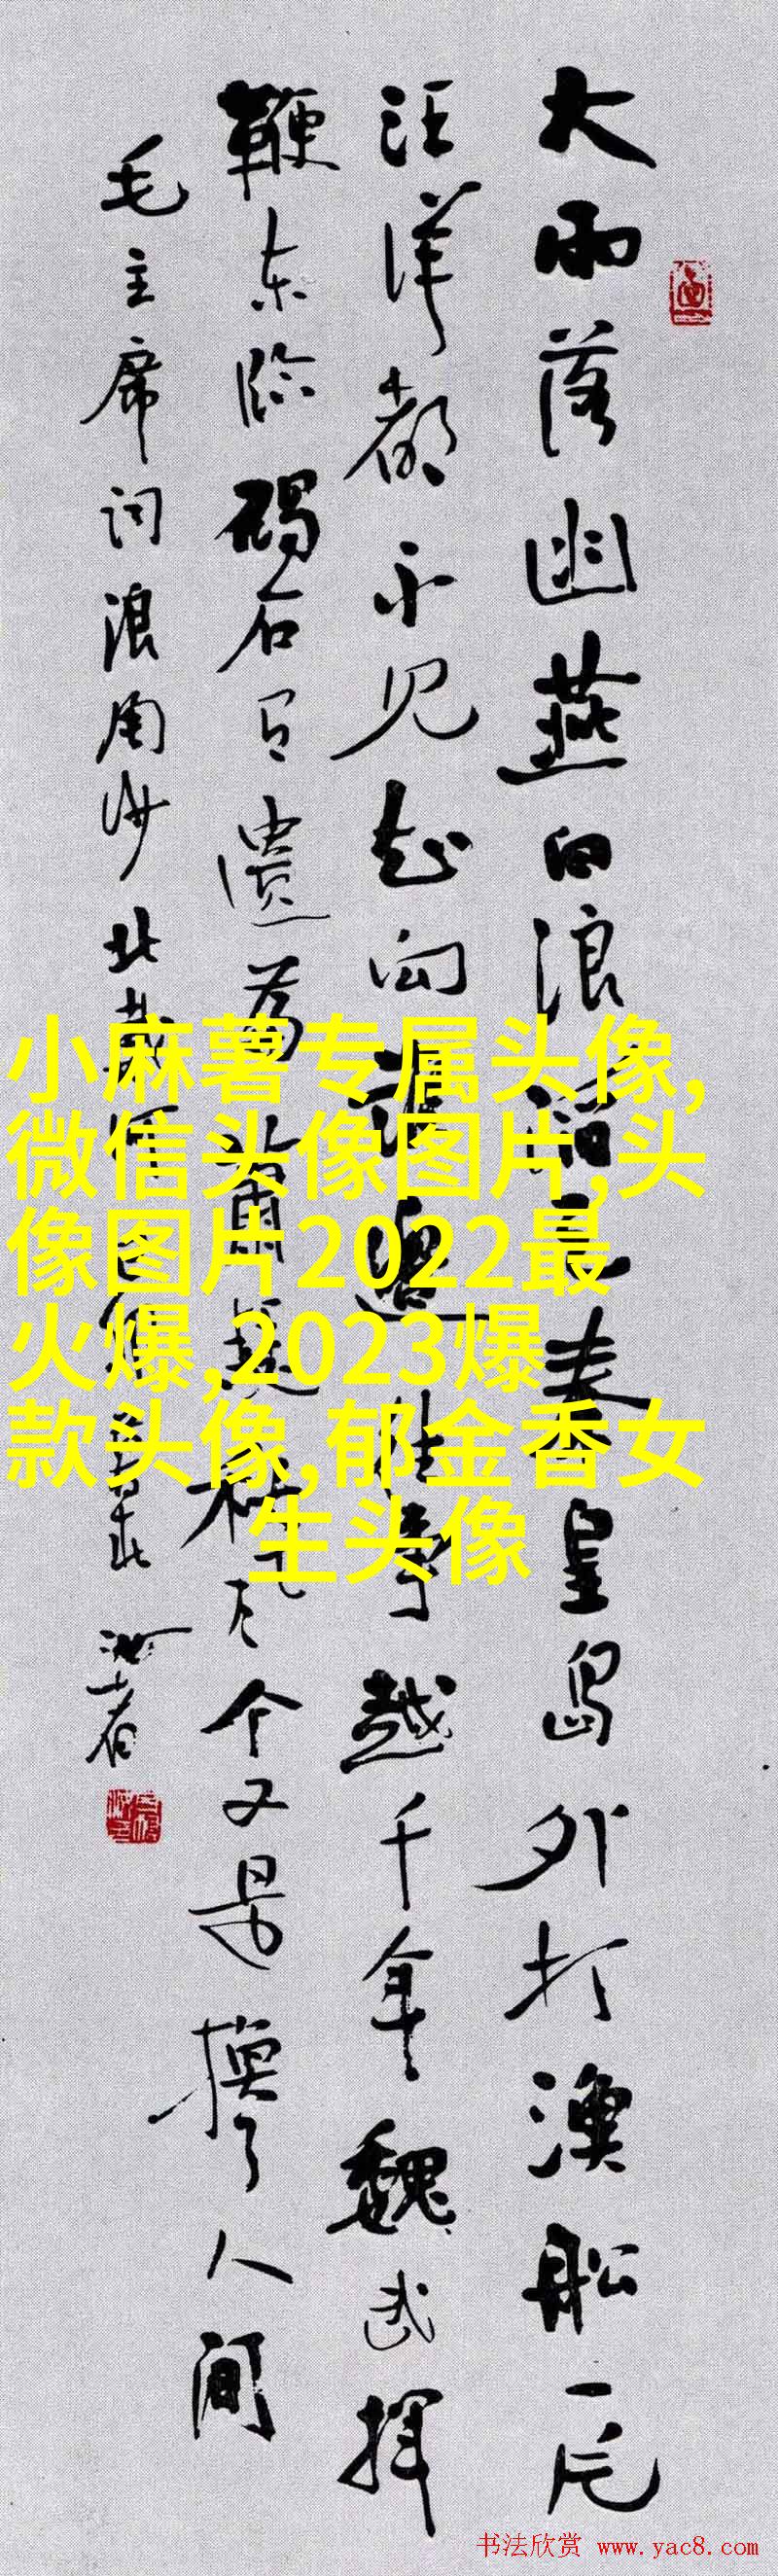 大雨落幽燕白浪滔天秦皇岛外打漁船一片
汪洋都不见知向谁邊往事越千年魏武揮
鞭东临碣石有遺篇萧瑟秋风今又是換了人间
毛主席词浪淘沙北戴河
小麻薯专属头像,
微信头像图片,头
像图片2022最
火爆,2023爆
款头像,郁金香女
生头像
书法欣赏 www.yac8.com